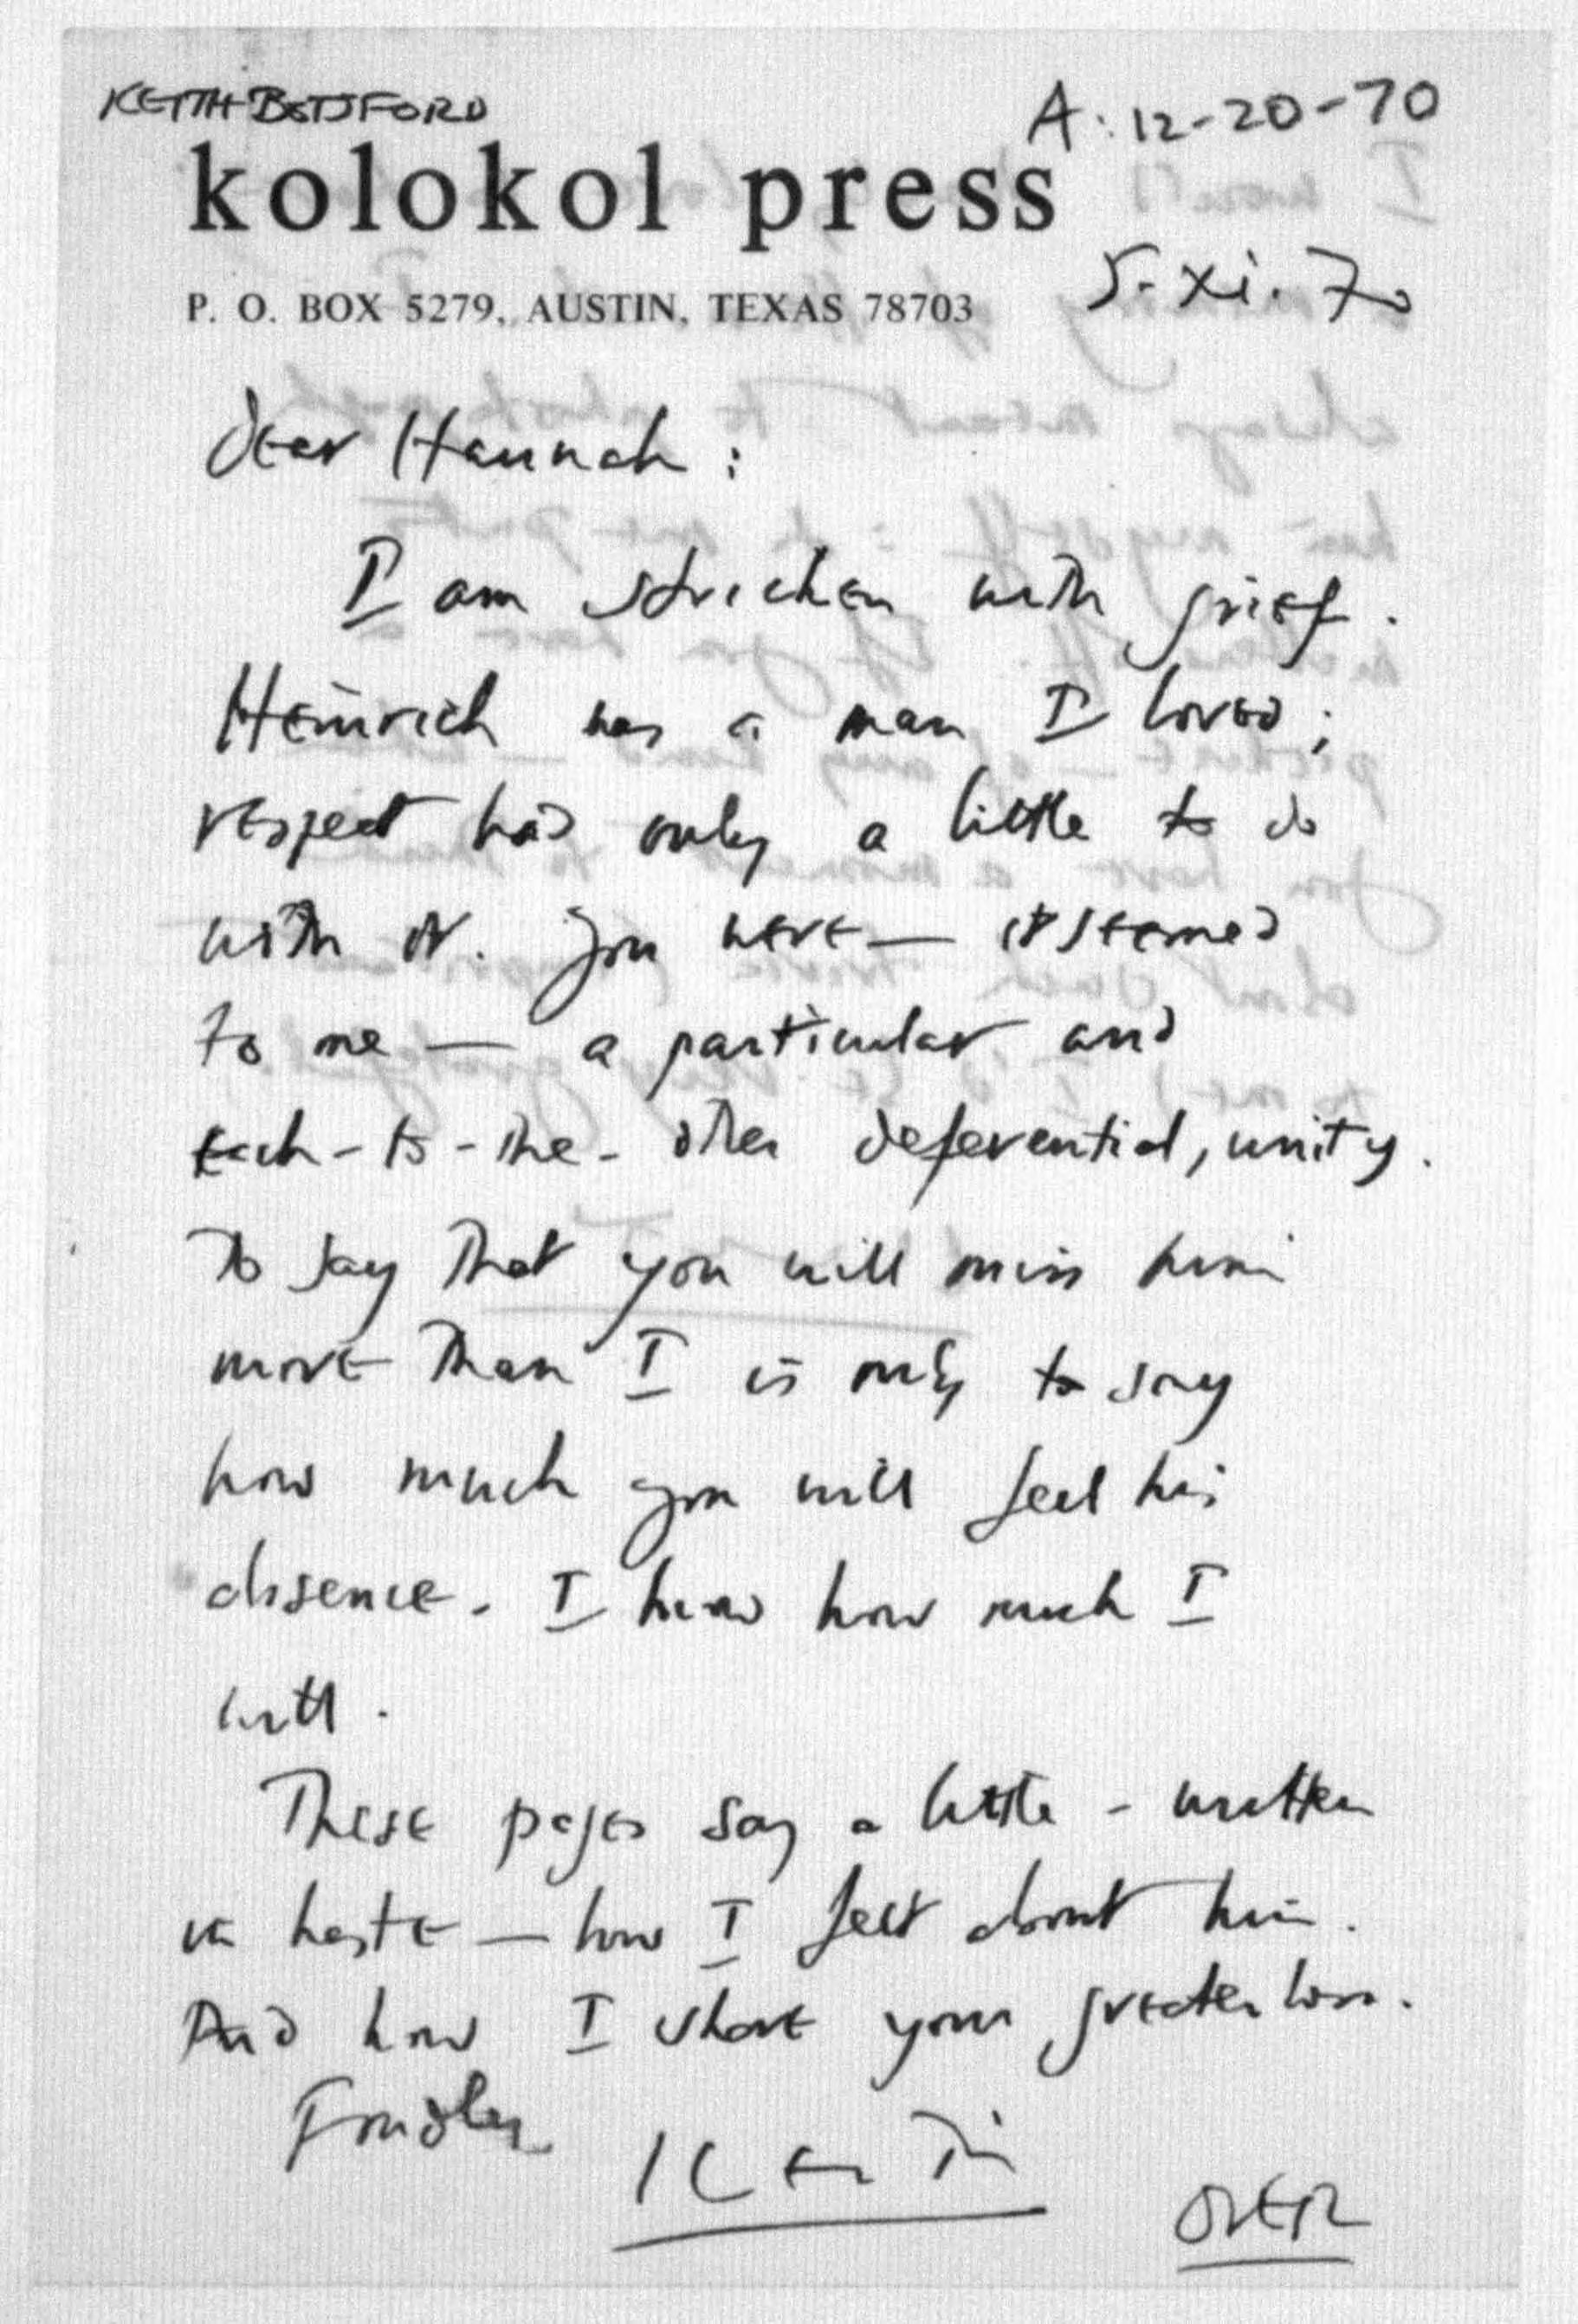 KEITH BOTSFORD
A: 12-20-70
kolokol press
5. xi. 70
P. O. BOX 5279, AUSTIN, TEXAS 78703
Dear Hannah:
I am stricken with grief.
Heinrich was a man I loved;
respect had only a little to do
with it. You were — it seemed
to me — a particular and
each-to-the-other deferential, unity.
To say that you will miss him
more than I is only to say
how much you will feel his
absence. I know how much I
will.
These pages say a little - written
in haste — how I felt about him.
And how I share your greater loss.
Fondly
Keith
OVER